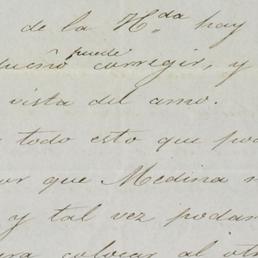 de la H.da hay
dueño puede corregir, y
vista del amo.
todo esto que pod
or que Medina n
y tal vez podam
ra colocar al otr